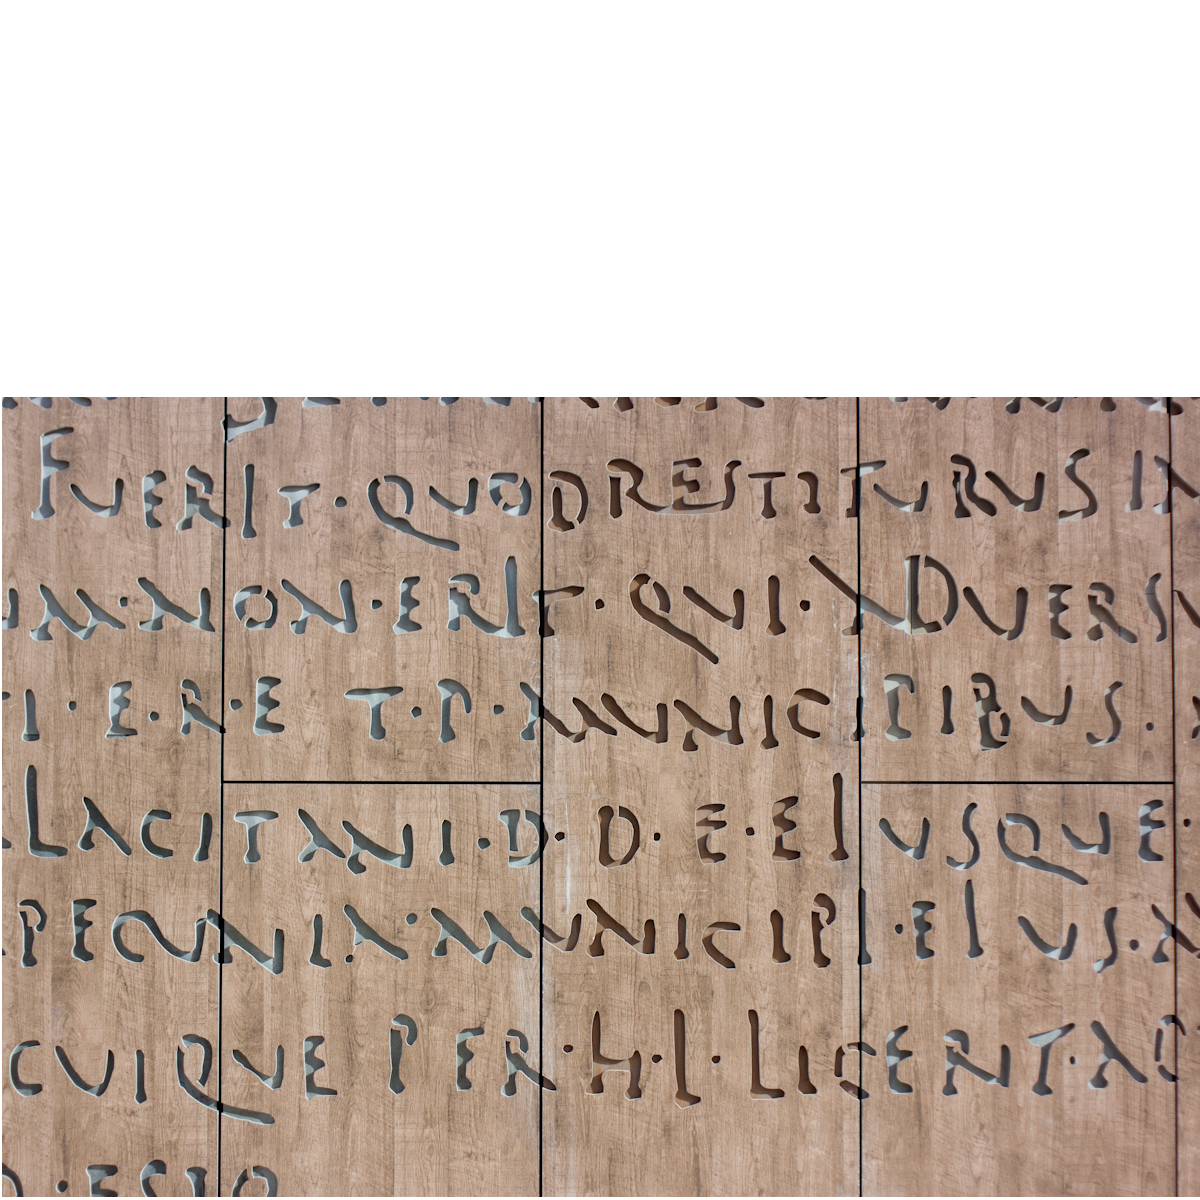 FUERIT·QUODRESTITURUS IN
UAM·NON·ERIT·QUI·ADUERS
I·E·R·E T·P·AMUNICIPIBUS·
LACITANI·D·D· E·EI USQUE·
PECUNIA·MUNICIPI·EI US·
CUIQUE PER·H·L·LICENT·AC
D·ESIO